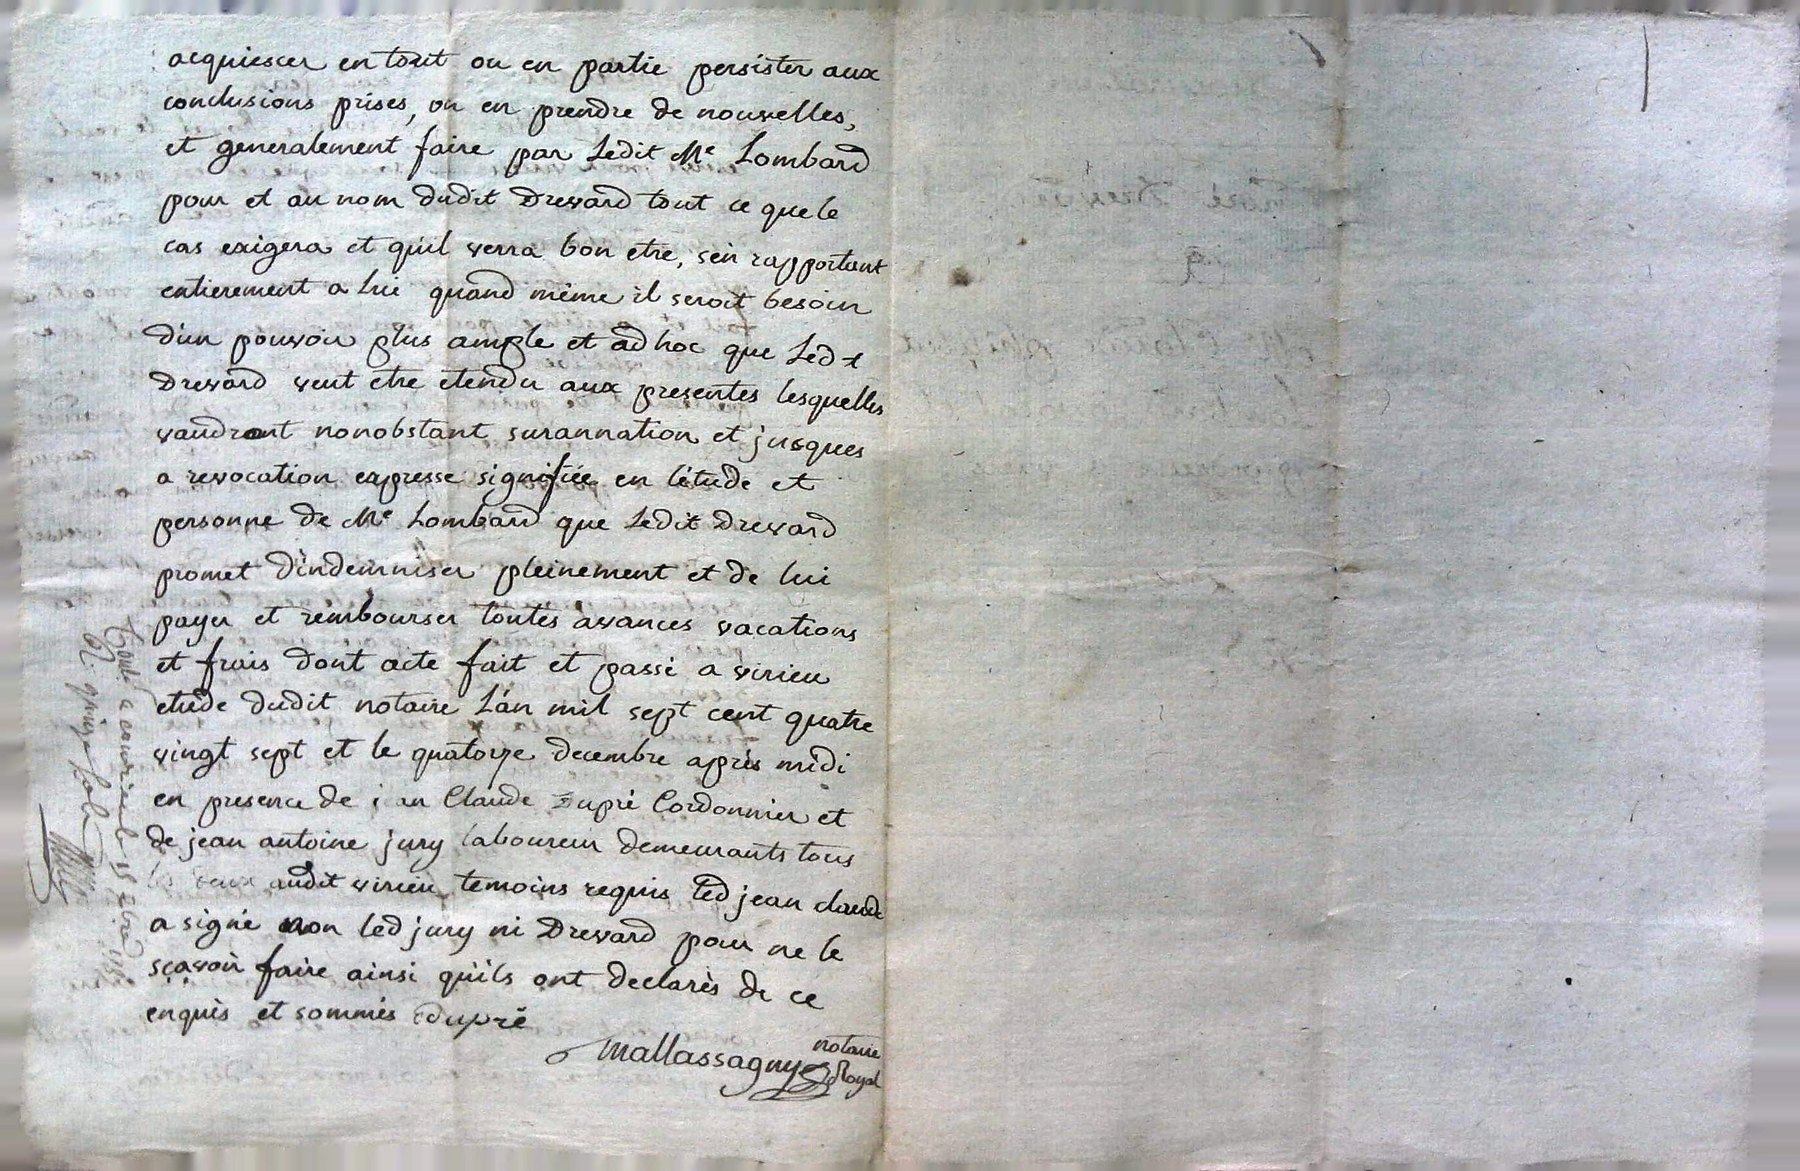 acquiescer en tout ou en partie persister aux
conclusions prises, ou en prendre de nouvelles,
et generalement faire par Ledit Me Lombard
pour et au nom dudit Drevard tout ce que le
cas exigera et qu'il verra bon etre, s'en rapportant
entierement a lui quand même il seroit besoin
d'un pouvoir plus ample et ad hoc que Ledt
Drevard veut etre etendu aux presentes lesquelles
vaudront nonobstant surannation et jusques
a revocation expresse signifiée en l'étude et
personne de Me Lombard que Ledit Drevard
promet d'indemniser pleinement et de lui
payer et rembourser toutes avances vacations
et frais dont acte fait et passé a virieu
etude dudit notaire L'an mil sept cent quatre
vingt sept et le quatorze decembre après midi
en presence de jean Claude Dupré Cordonnier et
de jean antoine jury laboureur demeurants tous
les deux audit virieu temoins requis led jean claude
a signé non led jury ni Drevard pour ne le
sçavoir faire ainsi qu'ils ont declarès de ce
enquis et sommés Dupré
Mallassagny notaire
Royal
a le 15
quinze sols